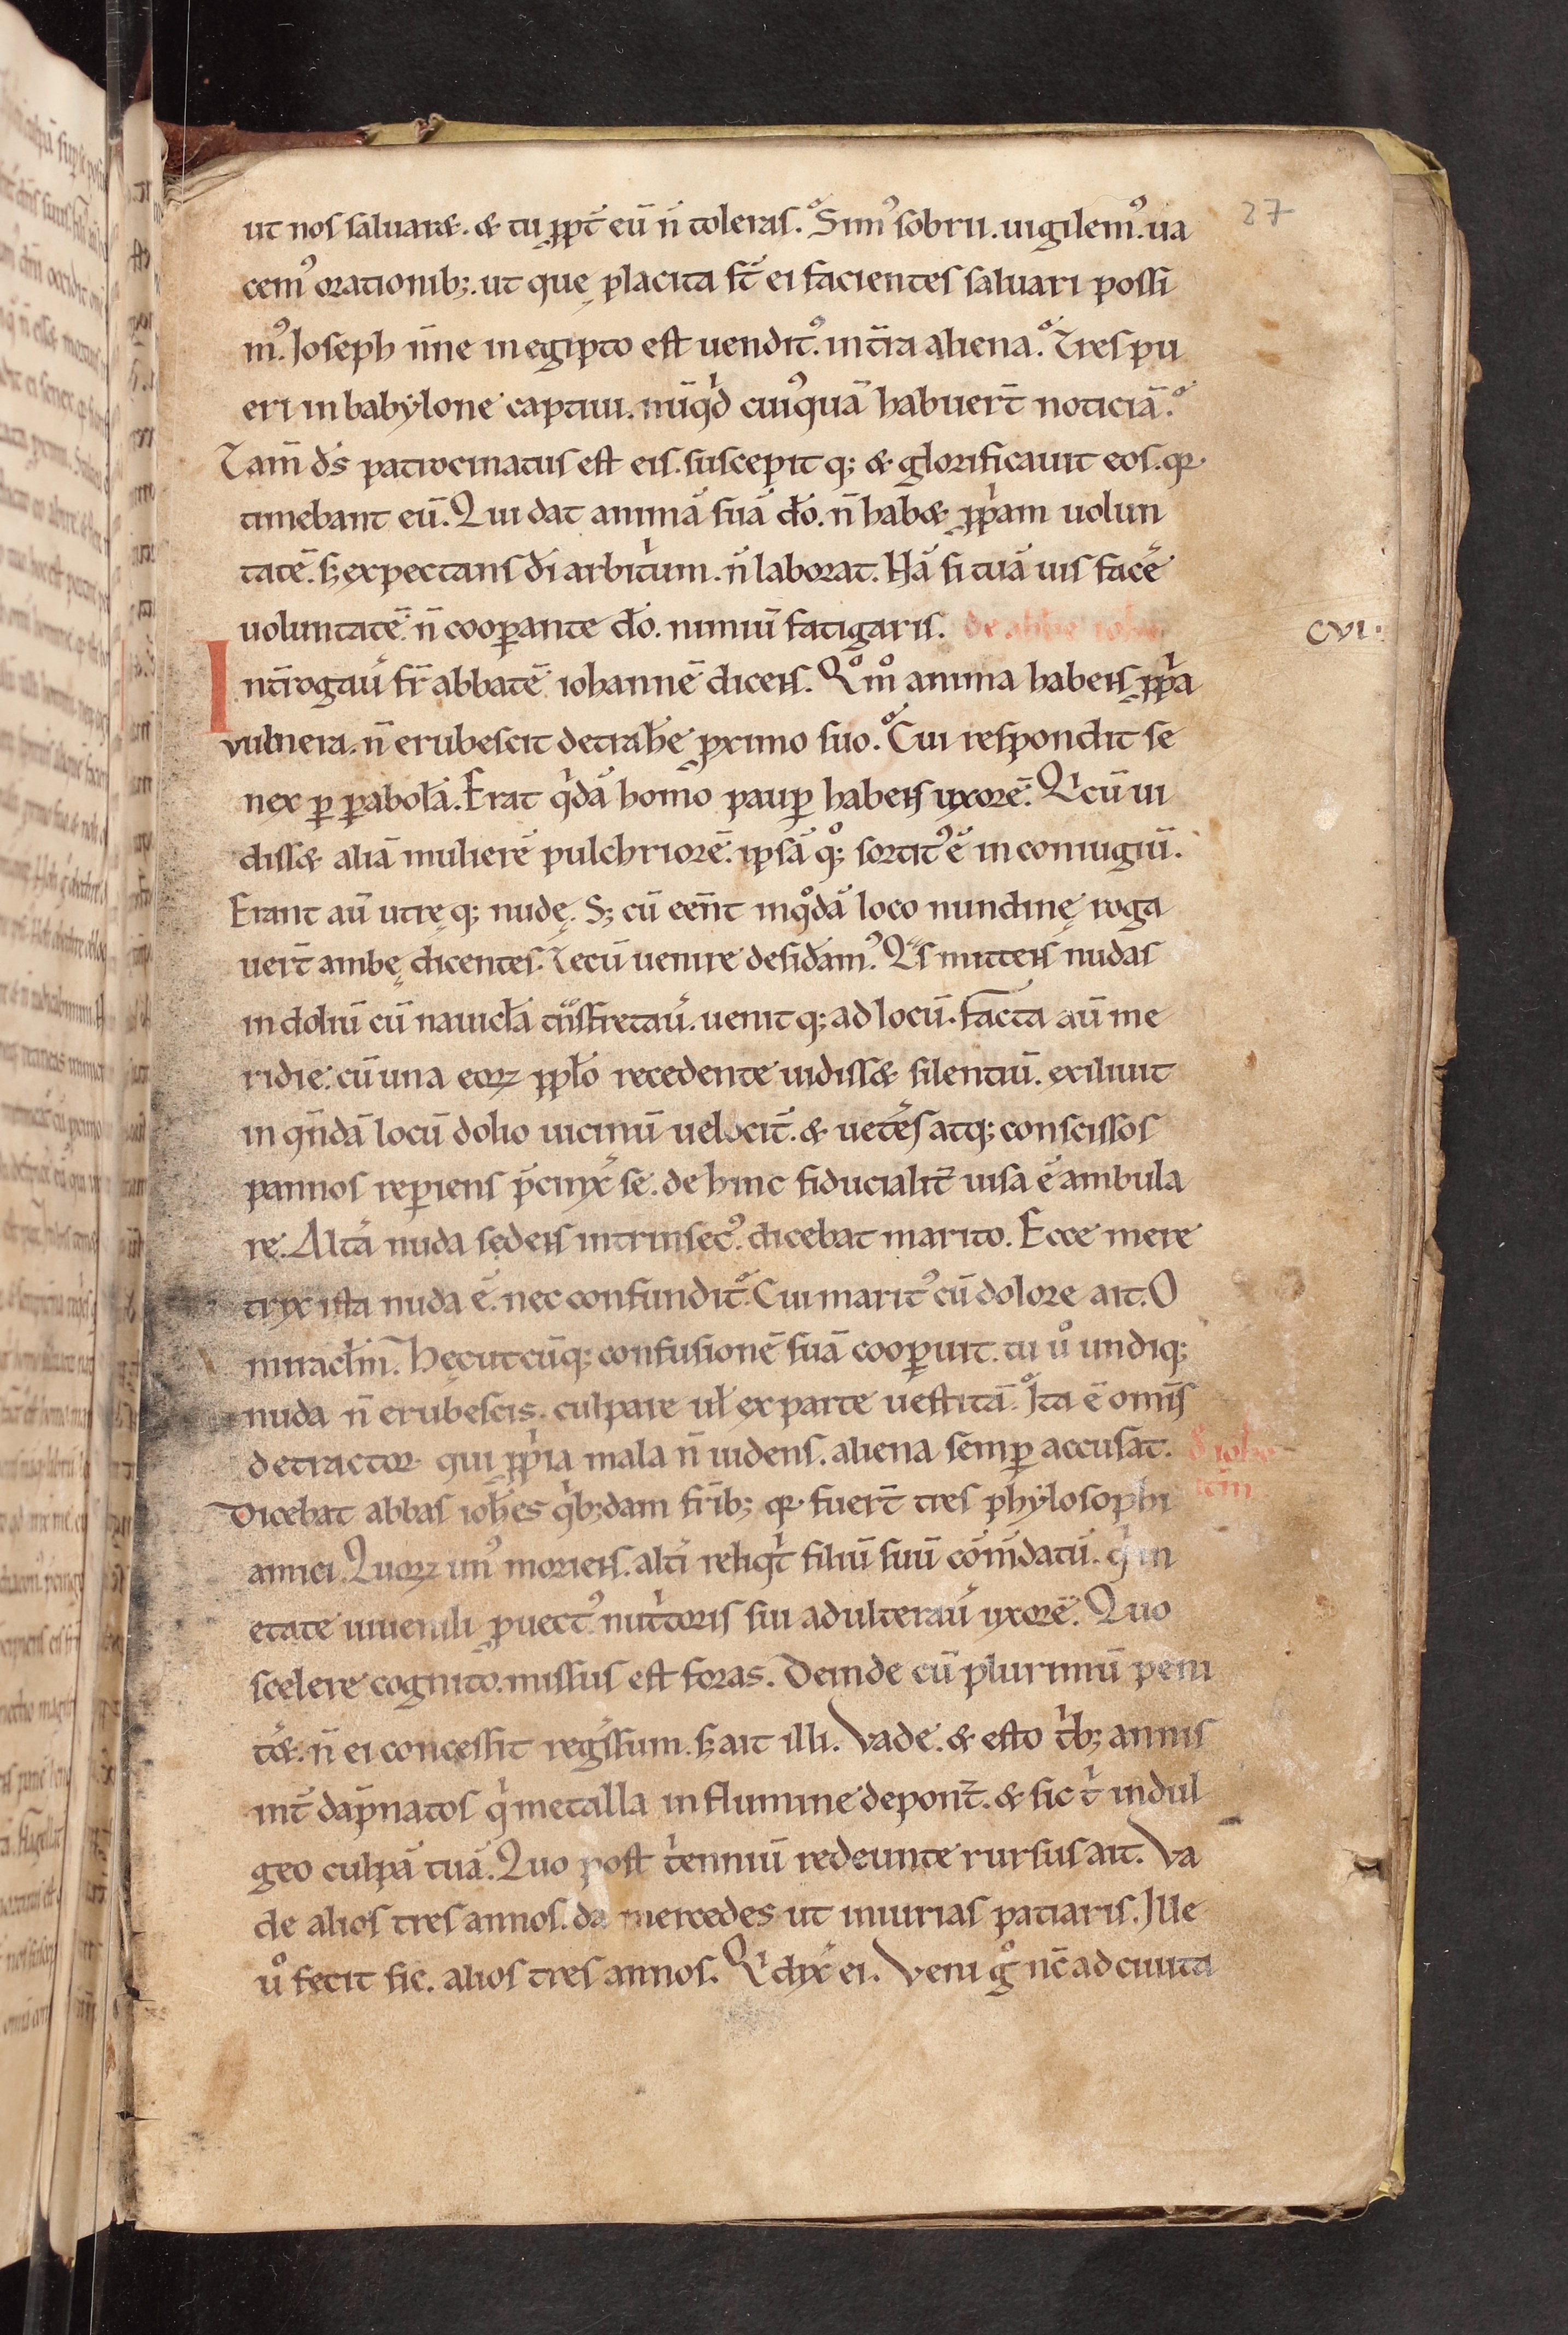 27
ut nos saluaret. & tu ꝓpt̄ eū n̄ toleras. Simꝰ sobrii. uigilemꝰ. ua
cemꝰ orationib;. ut quę placita st̄ ei facientes saluari possi
mꝰ. Ioseph n̄ne in egipto est uenditꝰ. in t̄ra aliena. Tres pu
eri in babẏlone captiui. nūqͥd cuiꝰquā habuert̄ noticiā.
Tam̄ ds̄ patrocinatus est eis. suscepit q; & glorificauit eos. qꝛ
timebant eū. Qui dat animā suā dō. n̄ habet ꝓpͥam uolun
tatē. s; expectans dī arbitͥum. n̄ laborat. Nā si tuā uis facē
uoluntatē. n̄ cooꝑante dō. nimiū fatigaris. de abbe ioh
CVI.
Int̄rogau̓ fr̄ abbatē iohannē dicens. Qͦmͦ anima habens ꝓpͥa
vulnera. n̄ erubescit detrahe̓ ꝓximo suo. Cui respondit se
nex ꝑ ꝑabolā. Erat qͥdā homo pauꝑ habens uxorē. Qͥ cū ui
disset aliā mulierē pulchriorē. ipsā qͦ; sortitꝰ ē in coniugiū.
Erant aū utręq; nudę. S; cū eēnt in qͦdā loco nundinę roga
uert̄ ambę dicentes. Tecū uenire desid̓amꝰ. Qͣs mittens nudas
in doliū cū nauicl̄a tͣnsfretau̓. uenit q; ad locū. facta aū me
ridie. cū una eoꝝ ppl̄o recedente uidisset silentiū. exiliuit
in qn̄dā locū dolio uicinū uelocit̄. & uete̓s atq; conscissos
pannos reꝑiens p̄cinx̓ se. de hinc fiducialit̄ uisa ē ambula
re. Alt̓a nuda sedens intrinsecꝰ. dicebat marito. Ecce mere
trix ista nuda ē. nec confundit̄. Cui maritꝰ cū dolore ait. O
miracl̄m. Hęc utcūq; confusionē suā cooꝑuit. tu uͦ undiq;
nuda n̄ erubescis. culpare ul̄ ex parte uestitā. Ita ē omīs
detractor qui ꝓpͥa mala n̄ uidens. aliena semꝑ accusat.
Dicebat abbas ioh̄es qͥb;dam fr̄ib; qꝛ fuert̄ tres phẏlosophi
amici. Quoꝝ unꝰ moriens. alt̓i reliqͥt filiū suū cōm̄datū. qͥ in
etate iuuenili ꝓuectꝰ. nutͥtoris sui adulterau̓ uxorē. Quo
scelere cognito. missus est foras. Deinde cū plurimū peni
te̓t. n̄ ei concessit reg̓ssum. s; ait illi. Vade. & esto tͥb; annis
int̄ dāpnatos qͥ metalla in flumine deponn̄t. & sic tͥ indul
geo culpā tuā. Quo post tͥenniū redeunte rursus ait. Va
de alios tres annos. da mercedes ut iniurias patiaris. Ille
uͦ fecit sic. alios tres annos. Qͥ dix̓ ei. Veni gͦ nc̄ ad ciuita